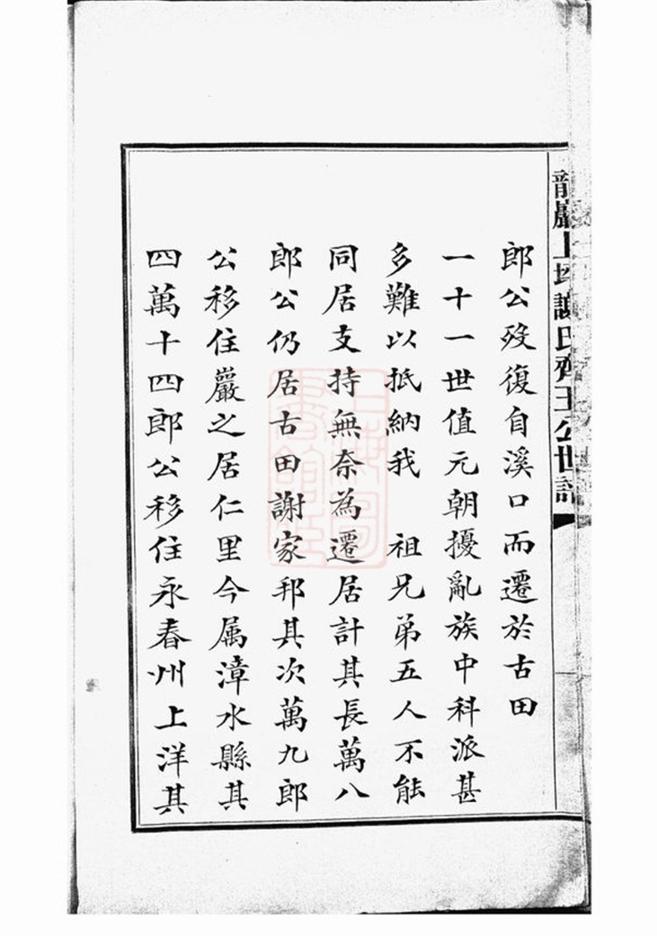 龍巖上坪謝氏齊王公世譜
郎公歿復自溪口而遷於古田
一十一世值元朝擾亂族中科派甚
多難以抵納我　祖兄弟五人不能
同居支持無奈為遷居計其長萬八
郎公仍居古田謝家邦其次萬九郎
公移住巖之居仁里今属漳水縣其
四萬十四郎公移住永春州上洋其